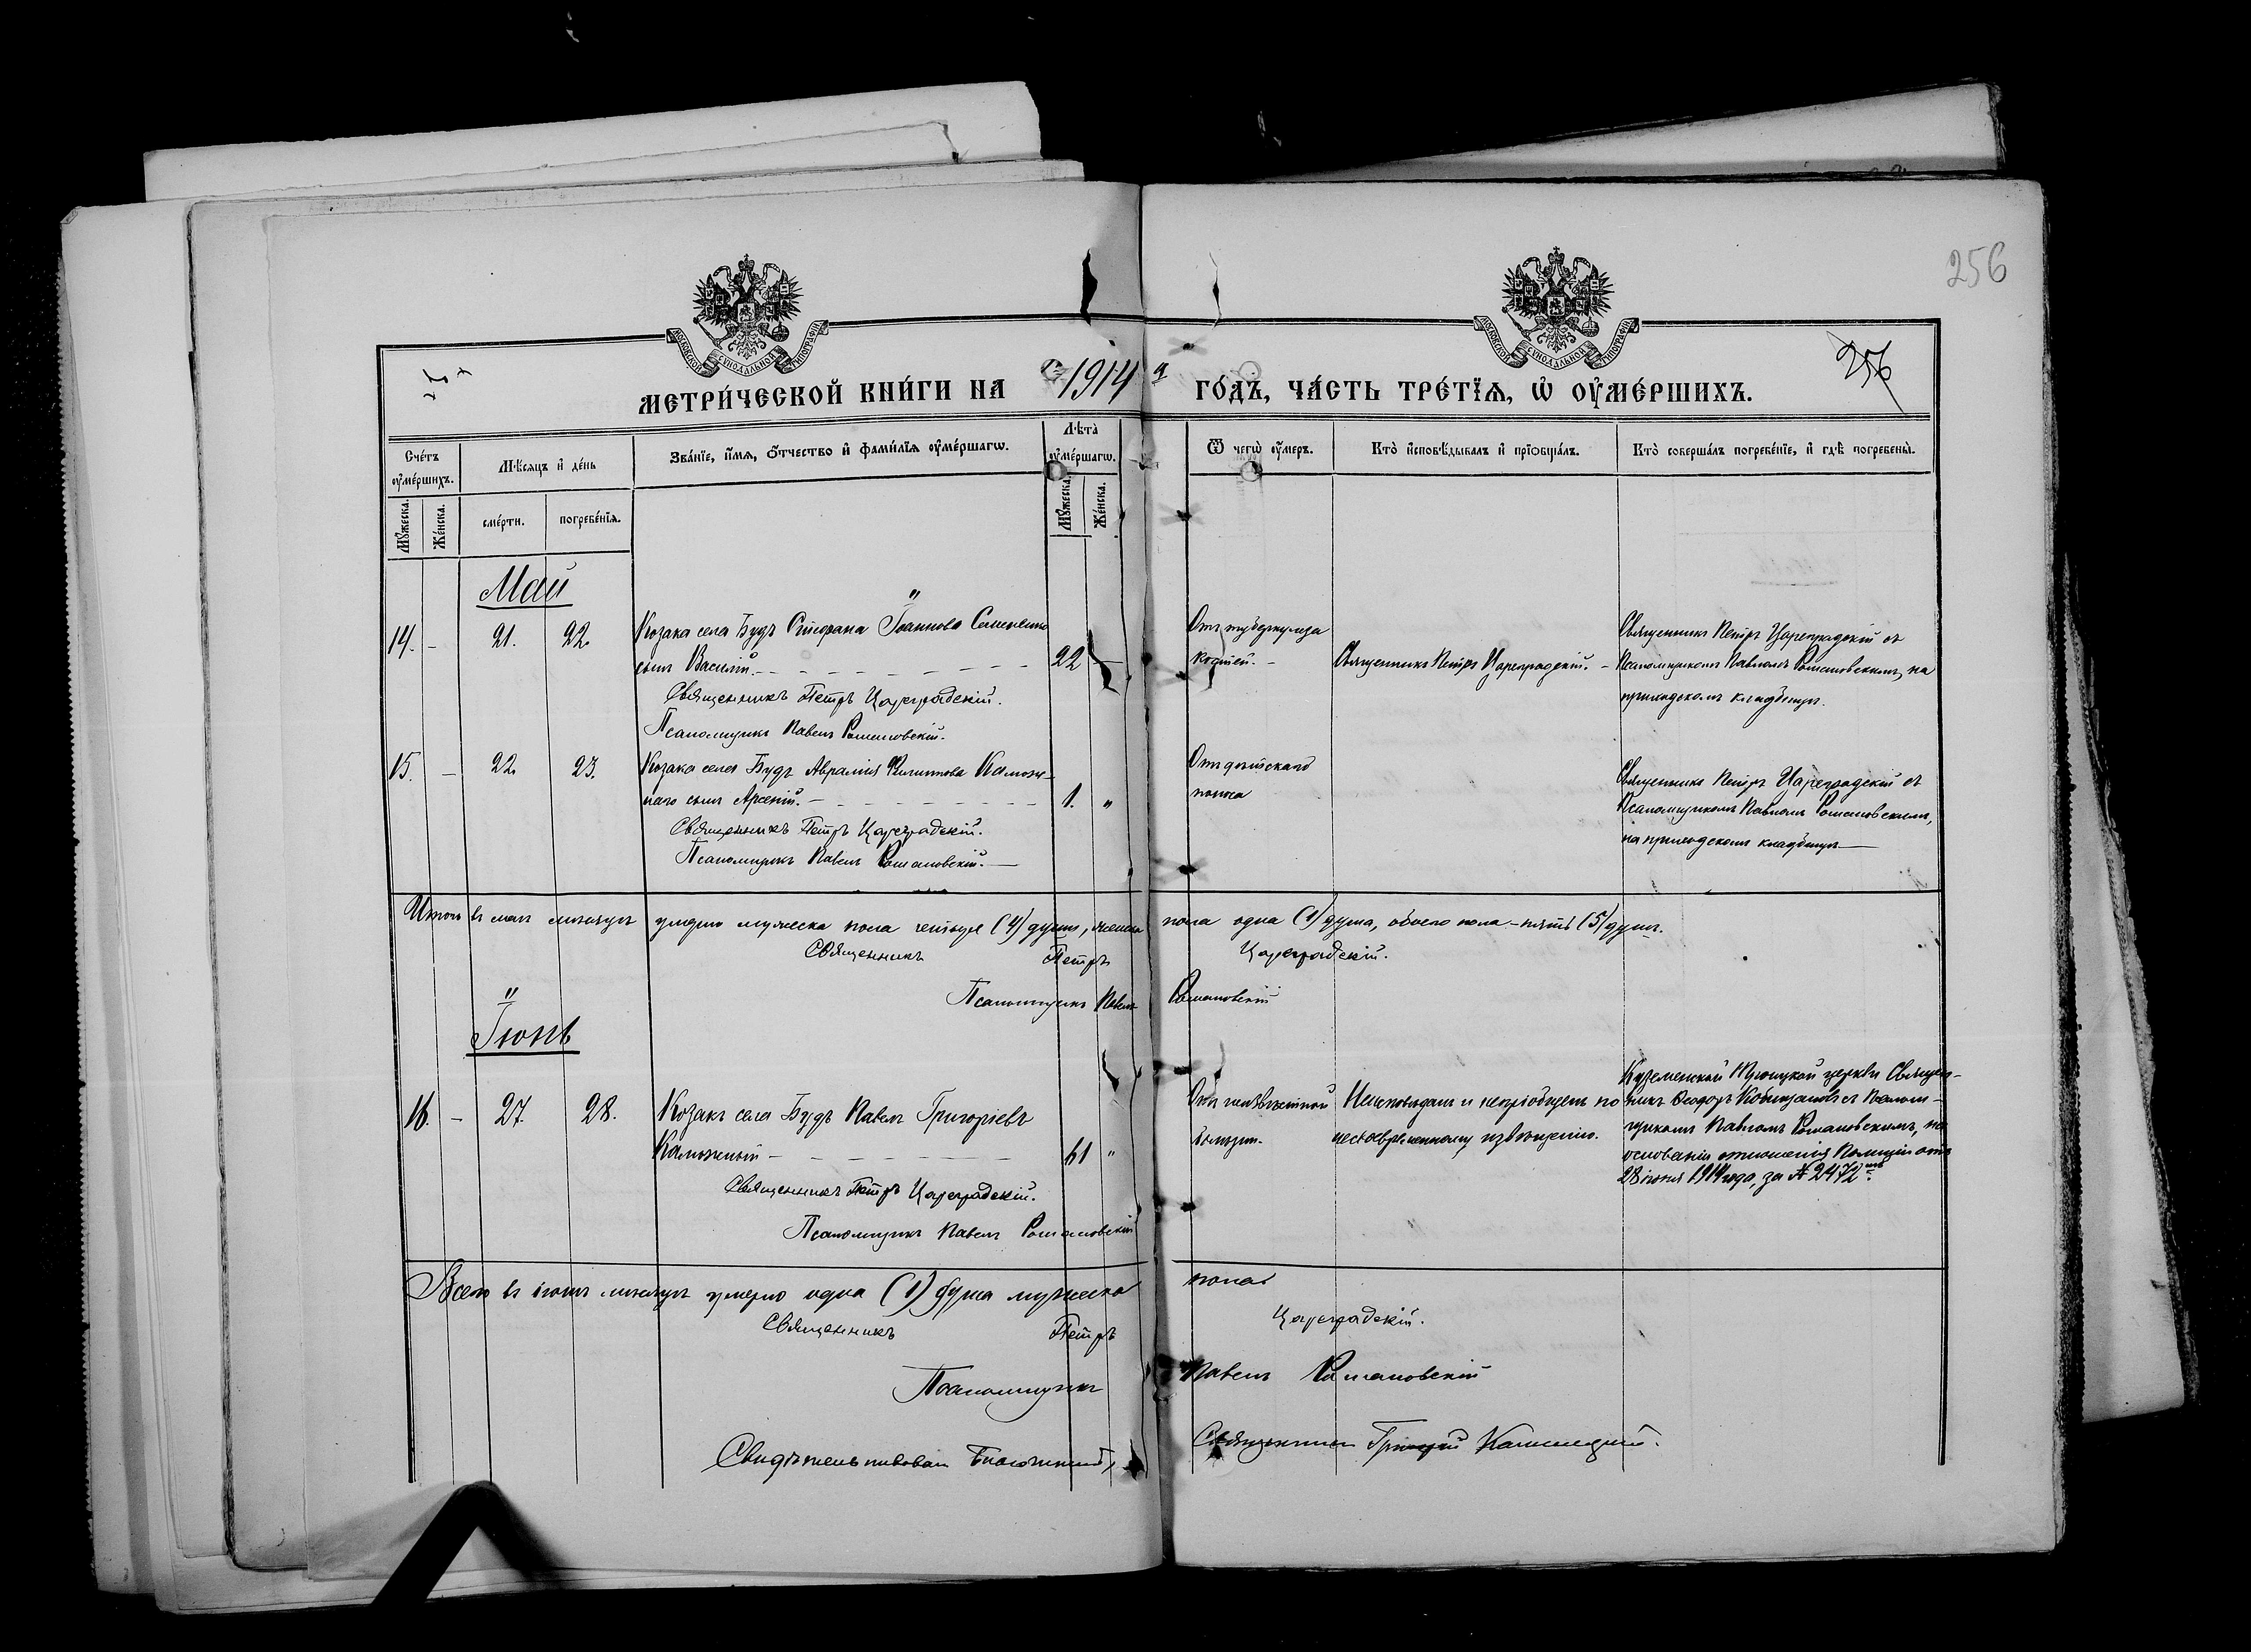 256
МОСКОВСКОЙ СѴНОДАЛЬНОЙ ТИПОГРАФІИ
МОСКОВСКОЙ СѴНОДАЛЬНОЙ ТИПОГРАФІИ
256
МЕТРИ́ЧЕСКОЙ КНИ́ГИ НА 1914 ГО́ДЪ, ЧА́СТЬ ТРЕ́ТЇѦ, Ѡ҆ ОУ҆МЕ́РШИХЪ.
Сче́тъ оу҆ме́ршихъ.
Мꙋ́жеска.
Же́нска.
Мѣ́сѧцъ и҆ де́нь
сме́рти.
погребе́нїѧ.
Зва́нїе, и҆́мѧ, ѻ҆́тчество и҆ фамі́лїѧ оу҆ме́ршагѡ.
Лѣ́та оу҆ме́ршагѡ.
Мꙋ́жеска.
Же́нска.
Ѿ чегѡ̀ оу҆́меръ.
Кто̀ и҆сповѣ́дывалъ и҆ прїѻбща́лъ.
Кто̀ соверша́лъ погребе́нїе, и҆ гдѣ̀ погребены̀.
Май
14. - 21. 22. Козака села Будъ Стефана Іоаннова Семененко
сынъ Василій. 22 -
Священникъ Петръ Цареградскій.
Псаломщикъ Павелъ Романовскій.
Отъ туберкулеза
костей.
Священникъ Петръ Цареградскій.
Священникъ Петръ Цареградскій съ
Псаломщикомъ Павломъ Романовскимъ, на
приходскомъ кладбищѣ.
15. - 22. 23. Козака села Будъ Аврамія Филиппова Каможнаго сынъ Арсеній. 1. "
Священникъ Петръ Цареградскій.
Псаломщикъ Павелъ Романовскій.
Отъ дѣтскаго
поноса
Священникъ Петръ Цареградскій съ
Псаломщикомъ Павломъ Романовскимъ,
на приходскомъ кладбищѣ
Итого въ маѣ мѣсяцѣ умерло мужеска пола четыре (4) души, женска пола одна (1) душа, обоего пола - пять (5) душъ.
Священникъ Петръ Цареградскій.
Псаломщикъ Павелъ Романовскій
Іюнь
16. - 27. 28. Козакъ села Будъ Павелъ Григоріевъ
Каможный 61 "
Священникъ Петръ Цареградскій.
Псаломщикъ Павелъ Романовскій
Отъ неизвѣстной
болѣзни.
Неисповѣданъ и непріобщенъ по
несвоевременному извѣщенію.
Троицкой церкви Священ-
никъ Ѳеодоръ съ Псалом-
щикомъ Павломъ Романовскимъ, на
основаніи отношенія Полиціи отъ
28 іюня 1914 года, за № 2472
Всего въ іюнѣ мѣсяцѣ умерло одна (1) душа мужеска пола
Священникъ Петръ Цареградскій.
Псаломщикъ Павелъ Романовскій
Свидѣтельствовалъ Благочинный,
Священникъ Григорій